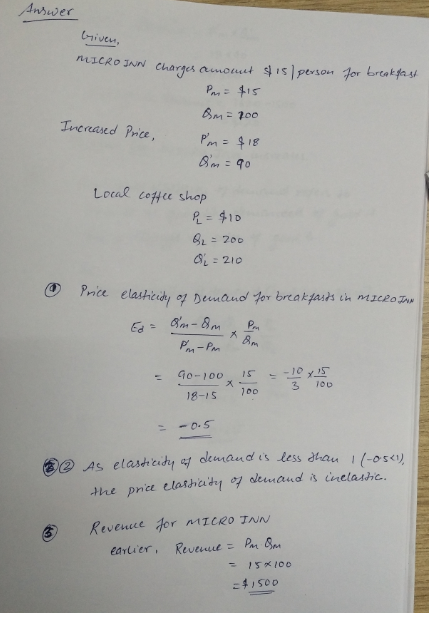 Answer
Given,
MICRO INN charges amount $15/person for breakfast
Pm = $15
Qm = 100
Increased Price, P'm = $18
Q'm = 90
Local coffee shop
PL = $10
QL = 200
Q'L = 210
① Price elasticity of Demand for breakfasts in MICRO INN
Ed = Q'm - Qm / P'm - Pm × Pm / Qm
= 90-100 / 18-15 × 15 / 100 = -10 / 3 × 15 / 100
= -0.5
② As elasticity of demand is less than 1 (-0.5<1),
the price elasticity of demand is inelastic.
③ Revenue for MICRO INN
earlier, Revenue = Pm Qm
= 15×100
= $1500